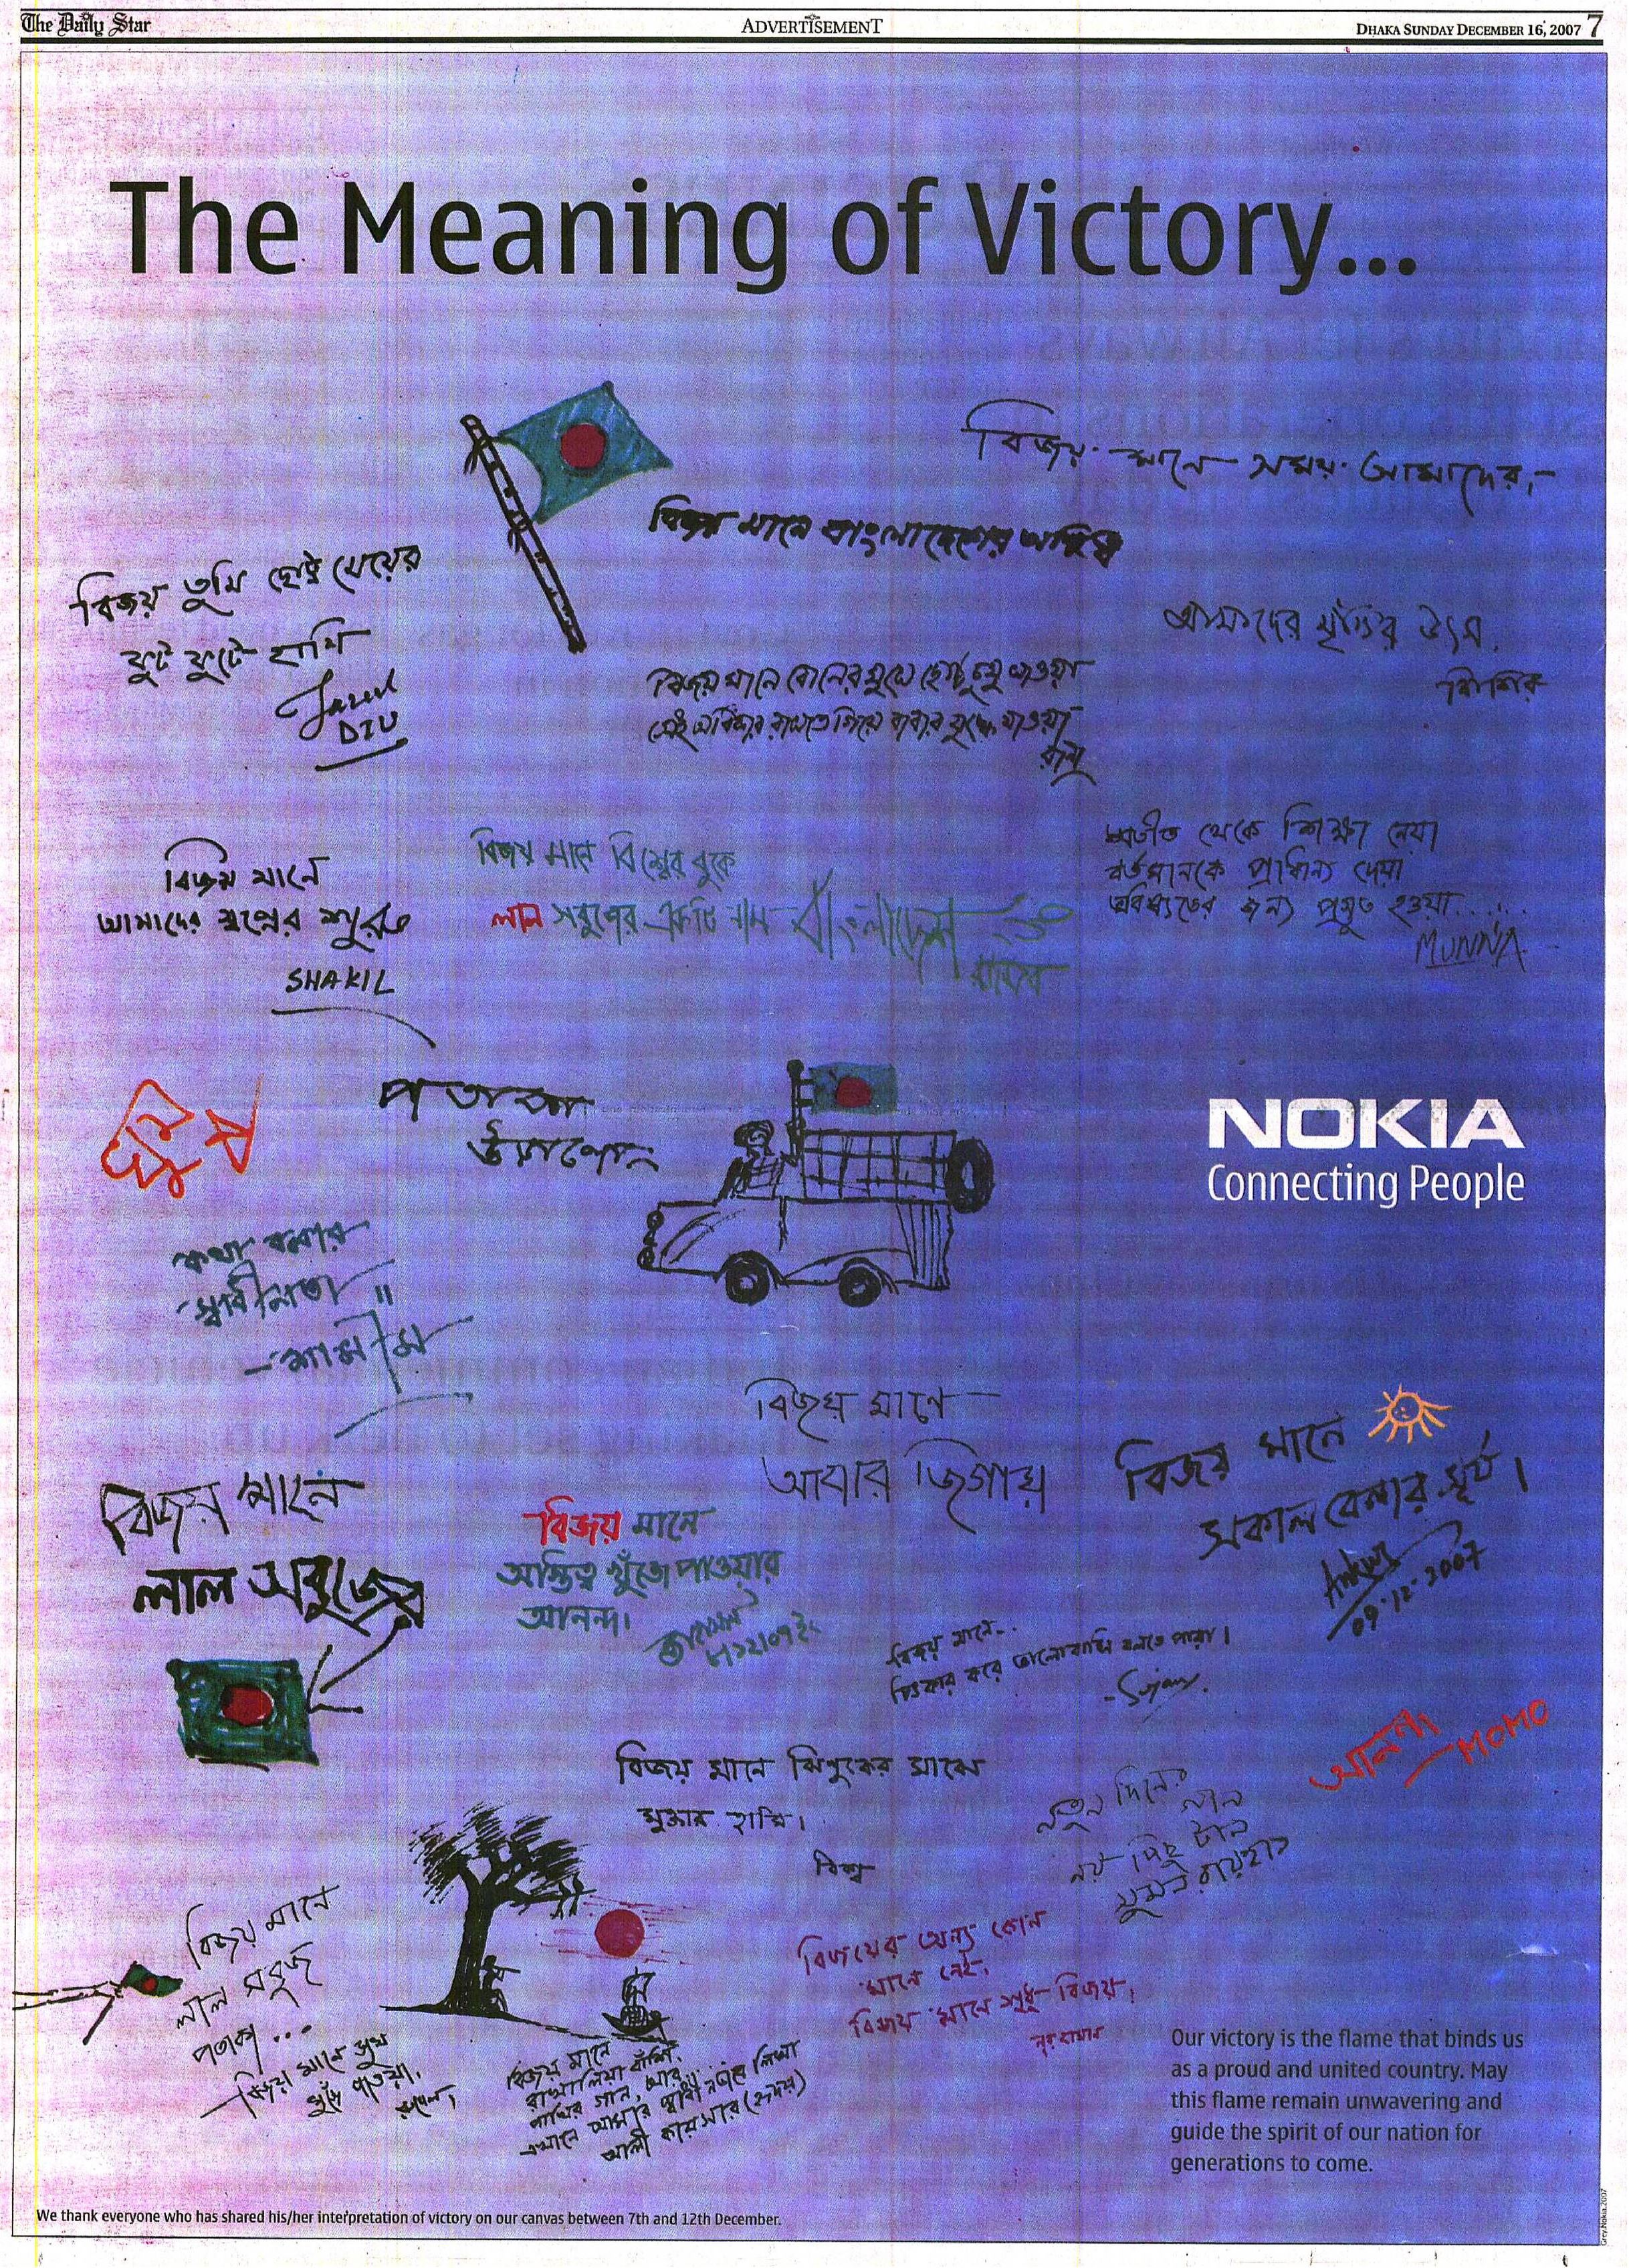 The Daily Star
ADVERTISEMENT
DHAKA SUNDAY DECEMBER 16, 2007 7
The Meaning of Victory...
বিজয় মানে সময় আমাদের,
বিজয় মানে বাংলাদেশের অস্তিত্ব
বিজয় তুমি ছোট্ট মেয়ের
ফুট ফুটে হাসি
DIU
আমাদের মুক্তির উৎস.
শিশির
বিজয় মানে বোনের মুখে ছোট্ট চুমু খাওয়া
সেই অধিকার রাখতে গিয়ে বাবার যুদ্ধে যাওয়া
বিজয় মানে
আমাদের স্বপ্নের শুরু
SHAKIL
বিজয় মানে বিশ্বের বুকে
লাল সবুজের একটি নাম বাংলাদেশ
রাকিব
অতীত থেকে শিক্ষা নেয়া
বর্তমানকে প্রাধান্য দেয়া
ভবিষ্যতের জন্য প্রস্তুত হওয়া.....
MUNNA
পতাকা
উত্তোলন
NOKIA
Connecting People
কথা বলার
স্বাধীনতা ॥
- শামীম
বিজয় মানে
আবার জিগায়
বিজয় মানে
সকাল বেলার সূর্য।
09.12.2007
বিজয় মানে
লাল সবুজের
বিজয় মানে
অস্তিত্ব খুঁজে পাওয়ার
আনন্দ।
বিজয় মানে...
চিৎকার করে ভালোবাসি বলতে পারা।
- Sujan.
আনন্দ
- MOMO
বিজয় মানে ঝিনুকের মাঝে
মুক্তার হাসি।
বিশ্ব
নতুন দিনের গান
নয় পিছু টান
সুমন রায়হান
বিজয় মানে
লাল সবুজ
পতাকা ...
বিজয় মানে সুখ
খুঁজে পাওয়া.
রুবেল।
বিজয়ের অন্য কোন
মানে নেই.
বিজয় মানে শুধু বিজয়।
বিজয় মানে
রাখালিয়া বাঁশি,
পাখির গান, আর
এখানে আমার স্বাধীনভাবে লিখা
আলী কায়সার (হৃদয়)
Our victory is the flame that binds us
as a proud and united country. May
this flame remain unwavering and
guide the spirit of our nation for
generations to come.
We thank everyone who has shared his/her interpretation of victory on our canvas between 7th and 12th December.
Grey.Nokia.2007